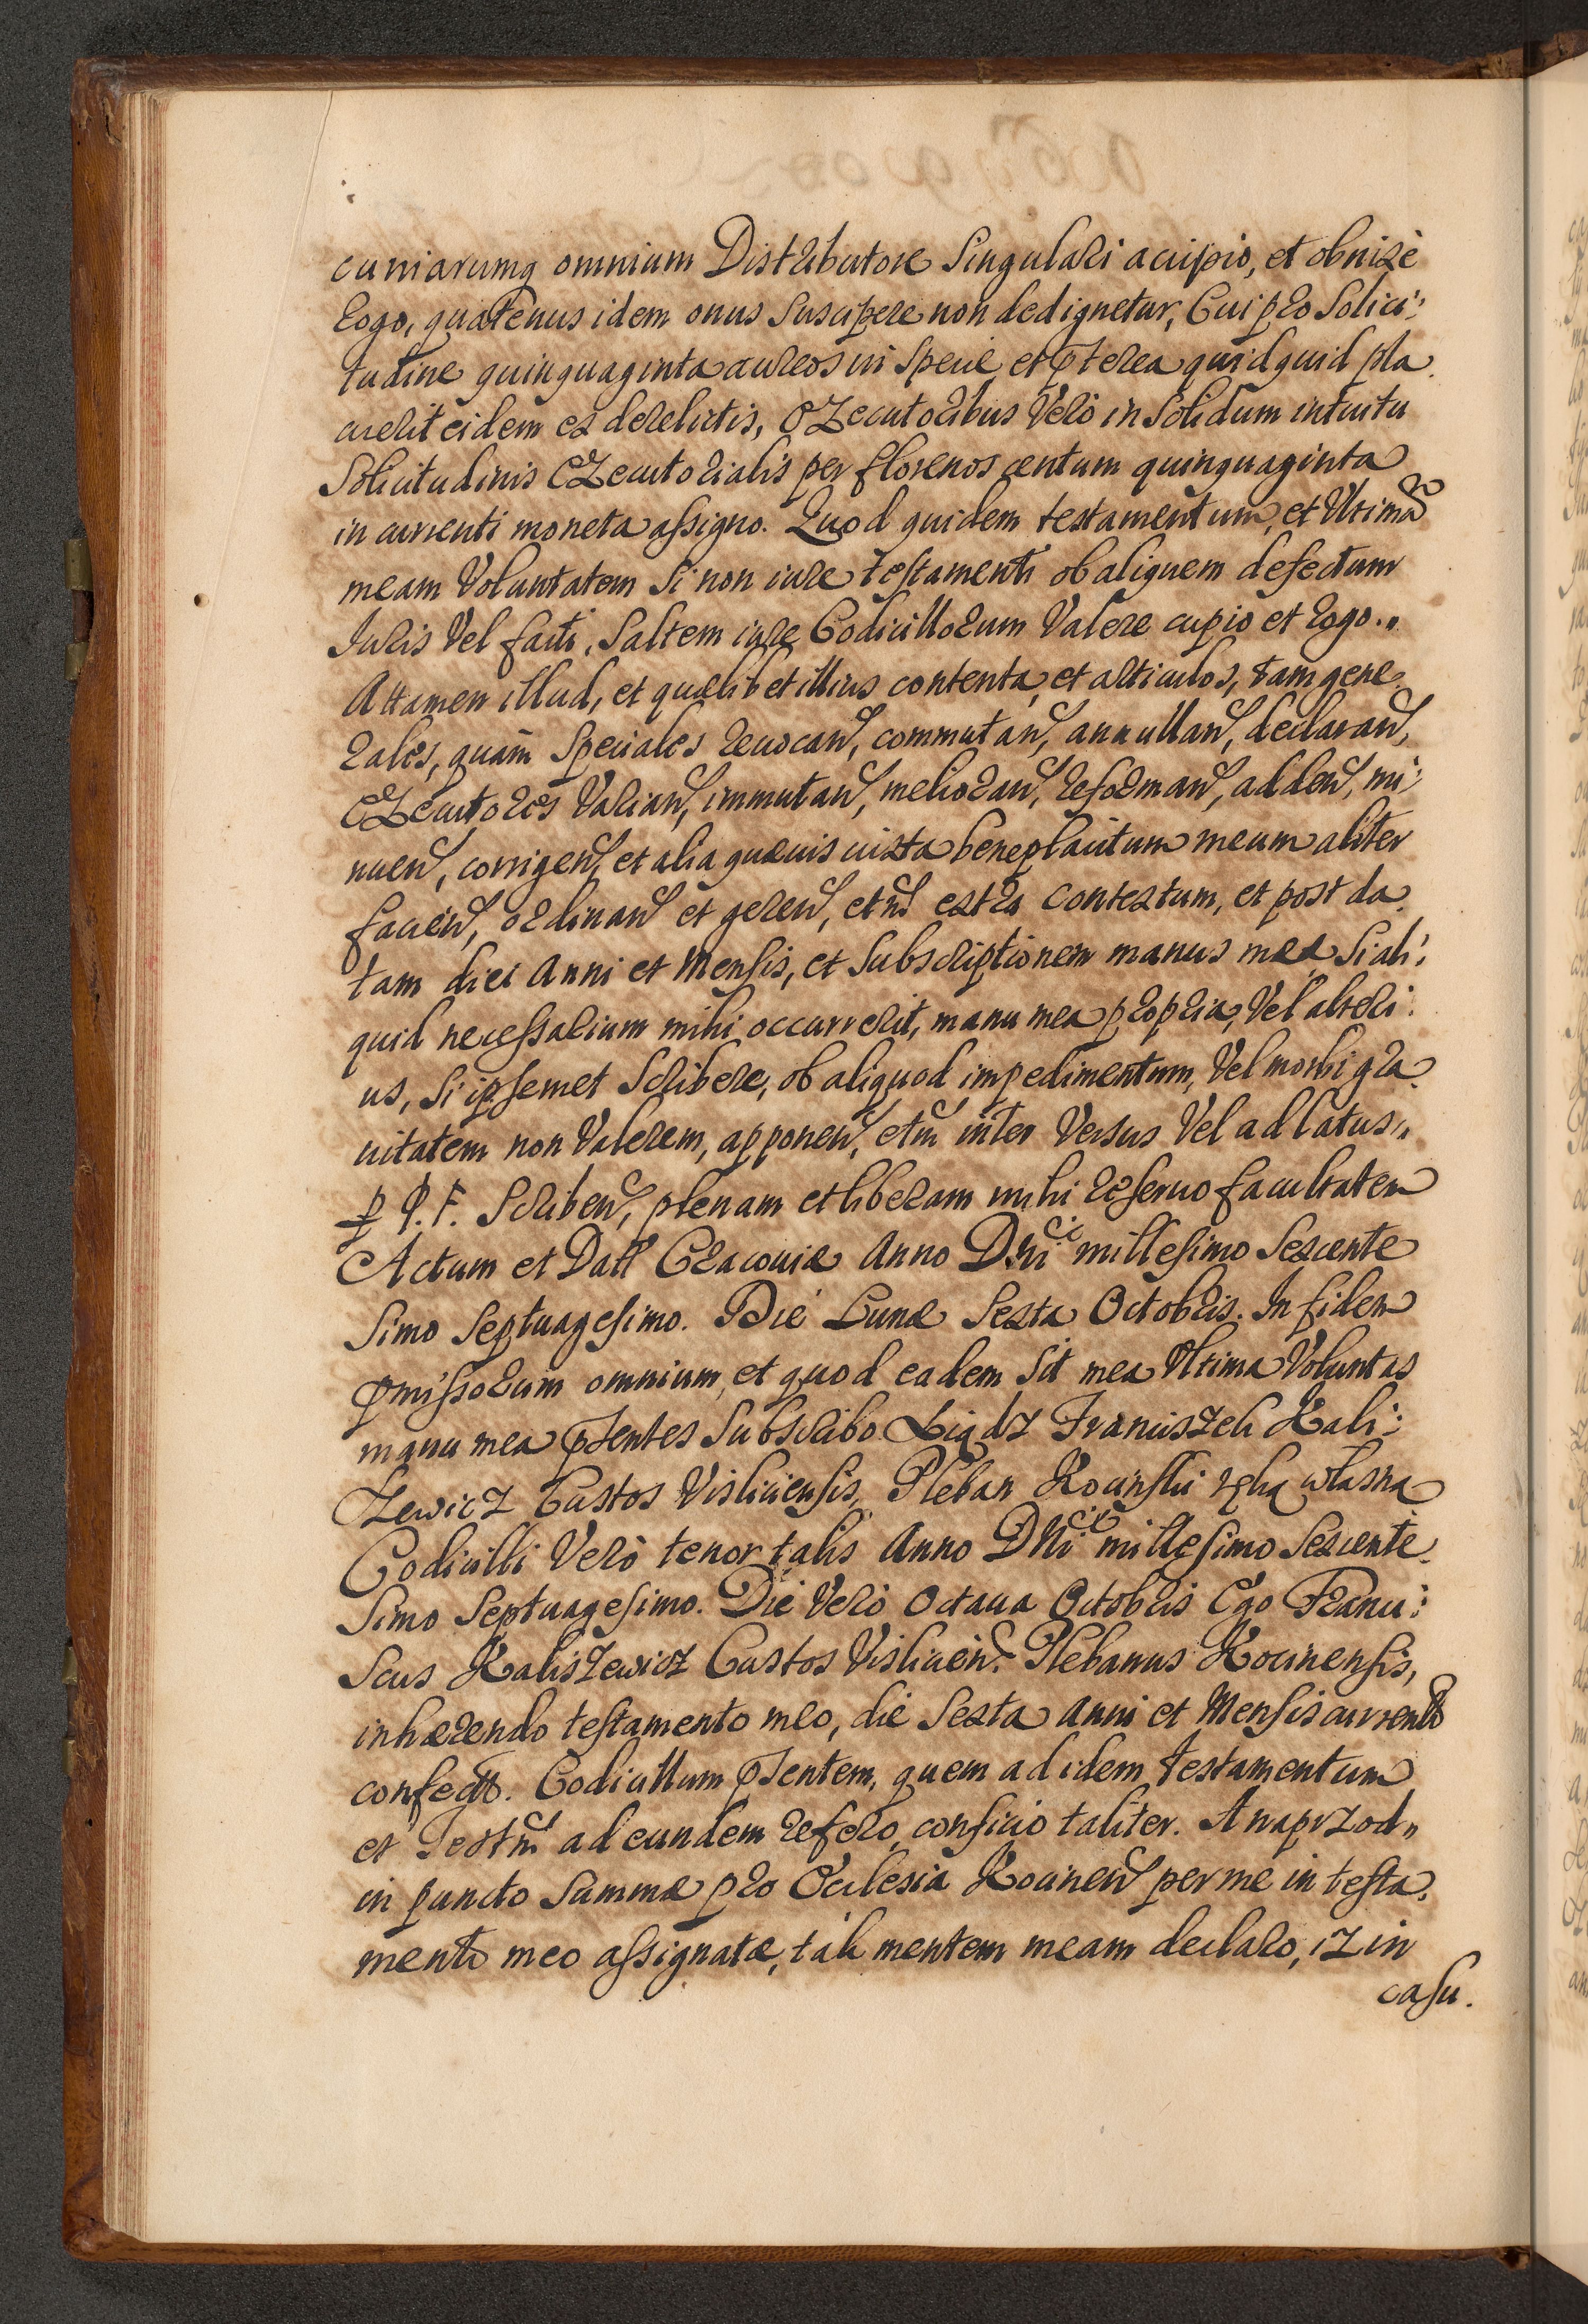 cuniarumq omnium Distributore Singulari accipio, et obnixè
Rogo, quatenus idem onus Suscipere non dedignetur, Cui pro Solici:
tudine quinquaginta aureos in Specie et pterea quidquid pla
cuerit eidem ex derelictis, Executoribus Verò in Solidum intuitu
Solicitudinis Executorialis per florenos centum quinquaginta
in currenti moneta assigno. Quod quidem testamentum, et Vltimã
meam Voluntatem Si non iure testamenti ob aliquem defectum
Iuris Vel facti, Saltem iure Codicillorum Valere cupio et Rogo.
Attamen illud, et quælibet illius contenta, et articulos, tam gene
rales, quàm Speciales revocand, commutand, annulland, declarand,
Executores Variand, immutand, meliorand, reformand, addend, mi:
nuend, corrigend, et alia quævis iuxta beneplacitum meum aliter
faciend, ordinand et gerend, etm extra Contextum, et post da
tam diei Anni et Mensis, et Subscriptionem manus meæ Si ali:
quid necessarium mihi occurrerit, manu mea propria, Vel alteri:
us, Si ipsemet Scribere, ob aliquod impedimentum, Vel morbi gra
vitatem non Valerem, apponend, etm inter Versus Vel ad latus
p P. F. Scribend, plenam et liberam mihi reservo facultatem
Actum et Datt Cracoviæ Anno Dni millesimo Sexcente
Simo Septuagesimo. Die Lunæ Sexta Octobris. In fidem
pmissorum omnium, et quod eadem Sit mea Vltima Voluntas
manu mea psentes Subscribo Xiądz Franciszek Kali:
Szewicz Custos Visliciensis, Pleban Kocinski ręką własną
Codicilli Verò tenor talis Anno Dni millesimo Sexcente
Simo Septuagesimo. Die Verò Octava Octobris Ego Franci:
Scus Kaliszewicz Custos Vislicien. Plebanus Kocinensis,
inhærendo testamento meo, die Sexta Anni et Mensis currento
confecto. Codicillum psentem, quem ad idem testamentum
et Testm ad eundem refero, conficio taliter. A naprzod
in puncto Summæ pro Ecclesia Kocinen per me in testa
mento meo assignatæ, tak mentem meam declaro, iz in
casu.